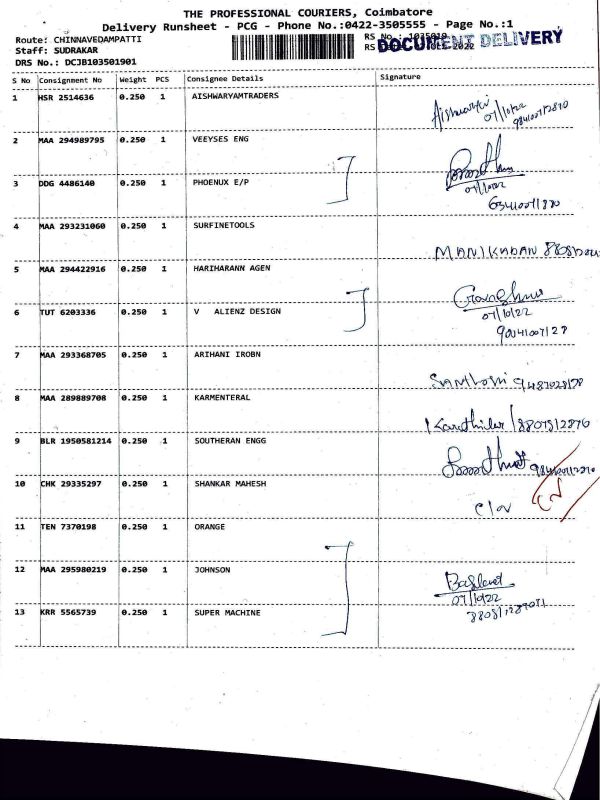 THE PROFESSIONAL COURIERS, Coimbatore
Delivery Runsheet - PCG - Phone No.:0422-3505555 - Page No.:1
Route: CHINNAVEDAMPATTI
Staff: SUDRAKAR
DRS No.: DCJB103501901
RS No.:
DOCUMENT DELIVERY
S No Consignment No Weight PCS Consignee Details Signature
1 HSR 2514636 0.250 1 AISHWARYAMTRADERS
07/10/22
2 MAA 294989795 0.250 1 VEEYSES ENG
3 DDG 4486140 0.250 1 PHOENUX E/P
07/10/22
4 MAA 293231060 0.250 1 SURFINETOOLS
MANIKADAN
5 MAA 294422916 0.250 1 HARIHARANN AGEN
6 TUT 6203336 0.250 1 V ALIENZ DESIGN
07/10/22
7 MAA 293368705 0.250 1 ARIHANI IROBN
8 MAA 289889708 0.250 1 KARMENTERAL
9 BLR 1950581214 0.250 1 SOUTHERAN ENGG
10 CHK 29335297 0.250 1 SHANKAR MAHESH
11 TEN 7370198 0.250 1 ORANGE
12 MAA 295980219 0.250 1 JOHNSON
07/10/22
13 KRR 5565739 0.250 1 SUPER MACHINE